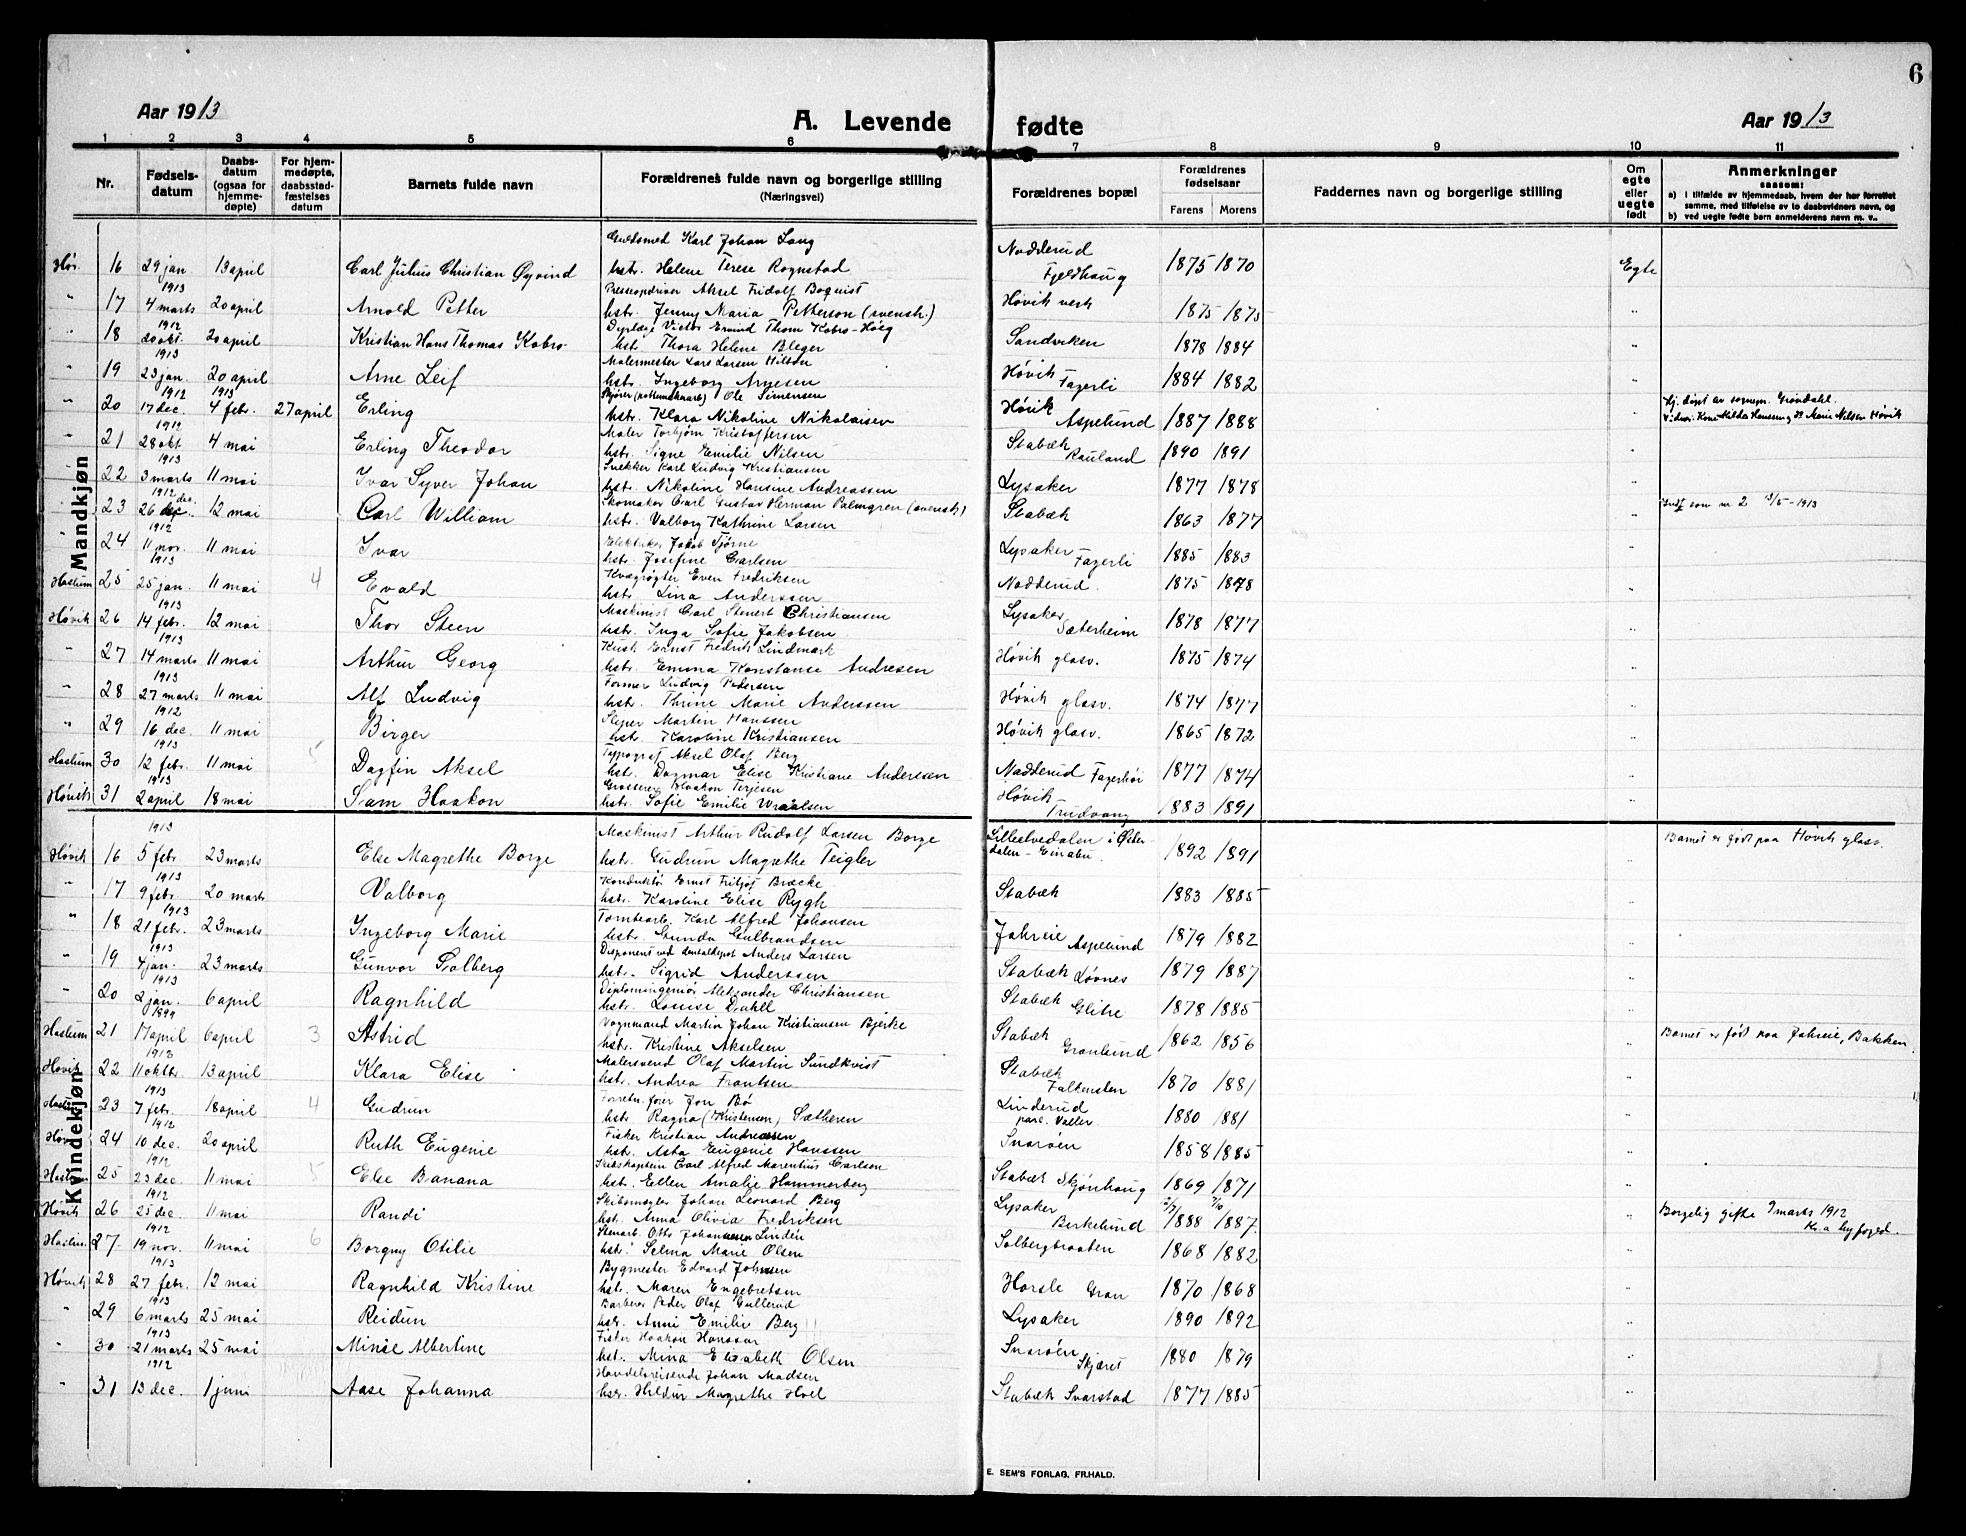 6
Aar 1913
A. Levende fødte
Aar 1913
1 2 3 4 5 6 7 8 9 10 11
Nr.
Fødsels-
datum
Daabs-
datum
(ogsaa for
hjemme-
døpte)
For hjem-
medøpte,
daabsstad-
fæstelses
datum
Barnets fulde navn
Forældrenes fulde navn og borgerlige stilling
(Næringsvei)
Forældrenes bopæl
Forældrenes
fødselsaar
Farens Morens
Faddernes navn og borgerlige stilling
Om
egte
eller
uegte
født
Anmerkninger
saasom:
a) i tilfælde av hjemmedaab, hvem der har forrettet
samme, med tilføielse av to daabsvidners navn, og
b) ved uegte fødte barn anmelderens navn m. v..
Mandkjøn
Guldsmed Karl Johan Lang
Høv. 16 29 jan 13 april Carl Julius Christian Øyvind hstr. Helene Terese Rognstad Nadderud Fjeldhaug 1875 1870 Egte
1913 Presseopdriver Aksel Fridolf Boquist
" 17 4 marts 20 april Arnold Petter hstr. Jenny Maria Petterson (svensk.) Høvik verk 1875 1875 "
1912 Dyrlæge Victor Eivind Thom Kobro-Høeg
" 18 20 okt. 20 april Kristian Hans Thomas Kobro- hst. Thora Helene Bleger Sandviken 1878 1884 "
1913 Malermester Lars Larsen Hilton
" 19 23 jan. 20 april Arne Leif hstr. Ingeborg Arnesen Høvik Fagerli 1884 1882 "
1912 1913 Ole Simensen
" 20 17 dec. 4 febr. 27 april Erling hstr. Klara Nikoline Nikolaisen Høvik Aspelund 1887 1888 " Hj. døpt av sognepr. Grøndahl.
Vidner: Kone Hilda Hansen og Marie Nilsen Høvik
1912 Maler Torbjørn Kristoffersen
" 21 28 okt. 4 mai Erling Theodor hstr. Signe Emilie Nilsen Stabæk Rauland 1890 1891 "
1913 Snekker Karl Ludvig Kristiansen
" 22 3 marts 11 mai Ivar Syver Johan hstr. Nikoline Hansine Andreassen Lysaker 1877 1878 "
1912 Skomaker Carl Gustav Herman Palmgren (svensk)
" 23 26 dec. 12 mai Carl William hstr. Valborg Kathrine Larsen Stabæk 1863 1877 " som nr 2 3/5-1913
1912 Elektriker Jakob Tjørne
" 24 11 nov. 11 mai Ivar hstr. Josefine Carlsen Lysaker Fagerli 1885 1883 "
1913 Kvægrøgter Even Fredriksen
Haslum 25 25 jan. 11 mai 4 Evald hstr. Lina Anderssen Nadderud. 1875 1878 "
1913 Maskinist Carl Stenert Christiansen
Høvik 26 14 febr. 12 mai Thor Steen hstr. Inga Sofie Jakobsen Lysaker Sæterheim 1878 1877 "
1913 Kusk Ernst Fredrik Lindmark
" 27 14 marts 11 mai Arthur Georg hstr. Emma Konstanse Andresen Høvik glasv. 1875 1874 "
1913 Former Ludvig Pedersen
" 28 27 marts 11 mai Alf Ludvig hstr. Thrine Marie Anderssen Høvik glasv. 1874 1877 "
1912 Sliper Martin Hanssen
" 29 16 dec 11 mai Birger hst. Karoline Kristiansen Høvik glasv. 1865 1872 "
1913 Typograf Aksel Olaf Berg
Haslum 30 12 febr. 11 mai 5 Dagfin Aksel hst. Dagmar Elise Kristiane Andersen Nadderud Fagerhøi 1877 1874 "
1913 Grosserer Haakon Terjesen
Høvik 31 2 april 18 mai Sam Haakon hstr. Sofie Emilie Wraalsen Høvik Trudvang 1883 1891 "
Kvindekjøn
1913 Maskinist Arthur Rudolf Larsen Borge
Høvik 16 5 febr. 23 marts Else Magrethe Borge hstr. Gudrun Magrethe Teigler Lilleelvedalen i Øster-
dalen - Einabu. 1892 1891 " Barnet er født paa Høvik glasv.
1913 Konduktør Ernst Fritjof Bræcke
" 17 9 febr. 20 marts Valborg hstr. Karoline Elise Rygh Stabæk 1883 1885 "
1913 Tomtearb. Karl Alfred Johansen
" 18 21 febr. 23 marts Ingeborg Marie hstr. Gunda Gulbrandsen Jahreie Aspelund 1879 1882 "
1913 Disponent ved dentaldepot Anders Larsen
" 19 4 jan. 23 marts Gunvor Solberg hstr. Sigrid Anderssen Stabæk Løvnes 1879 1887 "
1913 Diplomingeniør Aleksander Christiansen
" 20 2 jan. 6 april Ragnhild hstr. Louise Dahll Stabæk Glitre 1878 1885 "
1899 Vognmand Martin Johan Kristiansen Bjerke
Haslum 21 17 april 6 april 3 Astrid hstr. Kristine Akselsen Stabæk Granlund 1862 1856 " Barnet er født paa Jahreie, Bakken.
1912 Malersvend Olaf Martin Sundkvist
Høvik 22 11 oktbr. 13 april Klara Elise hstr. Andrea Frantsen Stabæk Falkensten 1870 1881 "
1913 Forretn.fører Jon Bø
Haslum 23 7 febr. 18 april 4 Gudrun hstr. Ragna (Kristensen) Sætheren Linderud parc. Valler 1880 1881 "
1912 Fisker Kristian Andreassen
Høvik 24 10 dec. 20 april Ruth Eugenie hstr. Asta Eugenie Hanssen Snarøen 1858 1885 "
1912 Skibskaptein Carl Alfred Marentius Carlsen
Haslum 25 23 dec. 11 mai 5 Else Banana hst. Ellen Amalie Hammerberg Stabæk Skjønhaug 1869 1871 "
1912 Skibsmægler Johan Leonard Berg
Høvik 26 25 dec. 11 mai Randi hst. Anna Olivia Fredriksen Lysaker Birkelund 1888 1887. " Borgelig gifte 9 marts 1912
Kr.a byfoged.
1912 Stenarb. Otto Johannessen Linden
Haslum 27 19 nov. 11 mai 6 Borgny Otilie hstr. Selma Marie Olsen Solbergbraaten 1868 1882 "
1913 Bygmester Edvard Johnsen
Høvik 28 27 febr. 12 mai Ragnhild Kristine hst. Maren Engebretsen Horsle Gran 1870 1868 "
1913 Barberer Peder Olaf Gullerud
" 29 6 marts 25 mai Reidun hstr. Anni Emilie Berg Lysaker 1890 1892 "
1913 Fisker Haakon Hanssen
" 30 21 marts 25 mai Minie Albertine hst. Mina Elisabeth Olsen Snarøen Skjæret 1880 1879 "
1912 Handelsreisende Johan Madsen
" 31 13 dec. 1 juni Aase Johanna hstr. Hildur Magrethe Hoel Stabæk Svarstad 1877 1885 "
E. SEM'S FORLAG, FR.HALD.